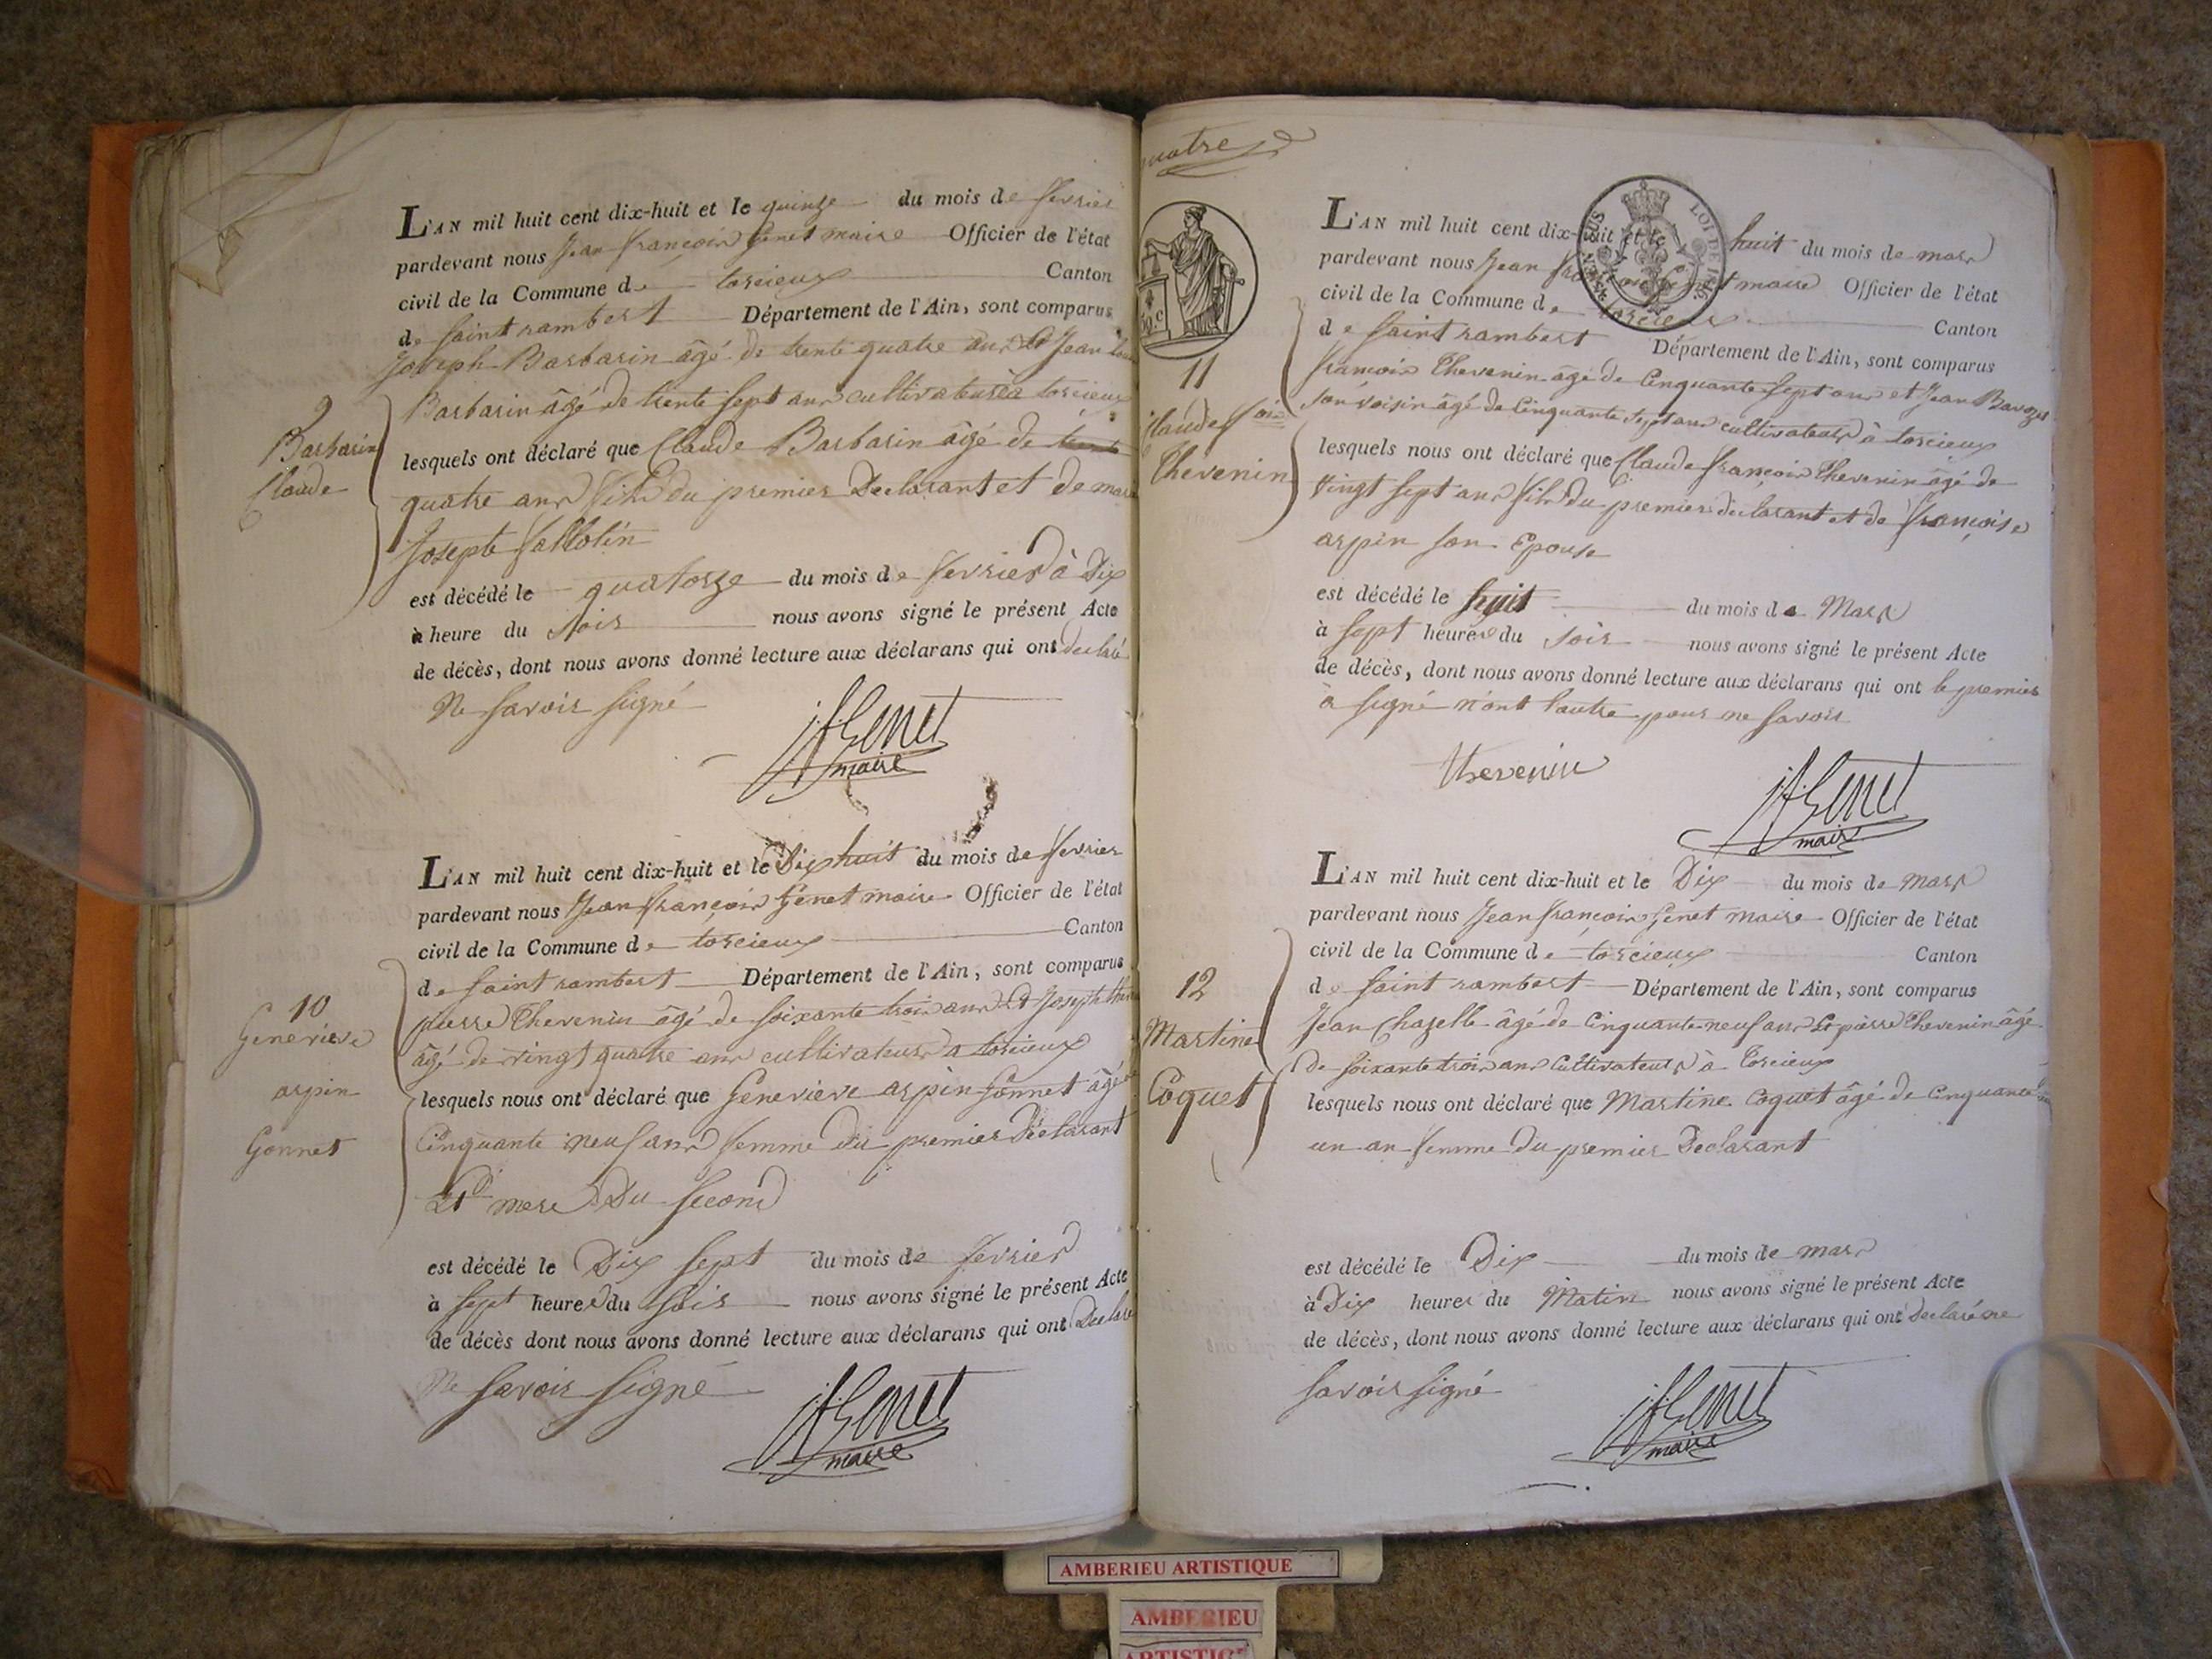 L'AN mil huit cent dix-huit et le quinze du mois de fevrier
pardevant nous Jean françois Genet maire Officier de l'état
civil de la Commune de torcieux Canton
de saint rambert Département de l'Ain, sont comparus
Joseph Barbarin âgé de trente quatre ans Et Jean
Barbarin âgé de trente sept ans cultivateurs à torcieux
9
Barbarin
Claude
lesquels ont déclaré que Claude Barbarin âgé de
quatre ans fils du premier Declarant et de
Josepte
est décédé le quatorze du mois de fevrier à Dix
à heure du soir nous avons signé le présent Acte
de décès, dont nous avons donné lecture aux déclarans qui ont declaré
Ne savoir signé
JfGenet
maire
L'AN mil huit cent dix-huit et le Dix huit du mois de fevrier
pardevant nous Jean françois Genet maire Officier de l'état
civil de la Commune de torcieux Canton
de saint rambert Département de l'Ain, sont comparus
pierre Thevenin âgé de soixante trois ans Et Joseph
âgé de vingt quatre ans cultivateurs a torcieux
10
Genevieve
arpin
Gonnet
lesquels nous ont déclaré que Genevieve arpin Gonnet âgé
Cinquante neuf ans femme du premier Déclarant
Et mere Du second
est décédé le Dix sept du mois de fevrier
à sept heures du soir nous avons signé le présent Acte
de décès dont nous avons donné lecture aux déclarans qui ont Declaré
Ne savoir signé
JfGenet
maire
LOI DE 1816
50.c
L'AN mil huit cent dix-huit et le huit du mois de mars
pardevant nous Jean françois Genet maire Officier de l'état
civil de la Commune de torcieux Canton
de saint rambert Département de l'Ain, sont comparus
francois Thevenin âgé de Cinquante sept ans et Jean
son voisin âgé de Cinquante sept ans cultivateurs à torcieux
11
Claude fois
Thevenin
lesquels nous ont déclaré que Claude françois Thevenin âgé de
vingt sept ans fils du premier declarant et de françoise
arpin son Epouse
est décédé le huit du mois de Mars
à sept heures du soir nous avons signé le présent Acte
de décès, dont nous avons donné lecture aux déclarans qui ont le premier
à signé n'ont l'autre pour ne savoir
thevenin
JfGenet
maire
L'AN mil huit cent dix-huit et le Dix du mois de mars
pardevant nous Jean françois Genet maire Officier de l'état
civil de la Commune de torcieux Canton
de saint rambert Département de l'Ain, sont comparus
Jean Chazelle âgé de Cinquante neuf ans Et pierre Thevenin âgé
De soixante trois ans Cultivateurs à Torcieux
12
Martine
Coquet
lesquels nous ont déclaré que Martine Coquet âgé de Cinquante
un an femme du premier Declarant
est décédé le Dix du mois de mars
à Dix heures du Matin nous avons signé le présent Acte
de décès, dont nous avons donné lecture aux déclarans qui ont Declaré ne
savoir signé
JfGenet
maire
AMBERIEU ARTISTIQUE
AMBERIEU